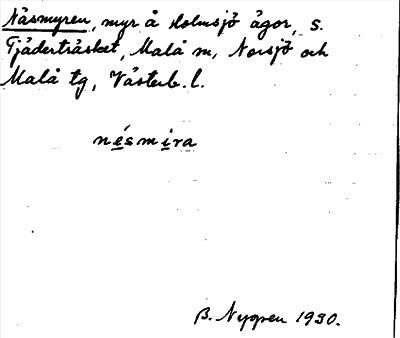 Näsmyren, myr å Holmsjö ägor, s.
Tjäderträsket, Malå sn, Norsjö och
Malå tg, Västerb. l.
nésmira
B. Nygren 1930.